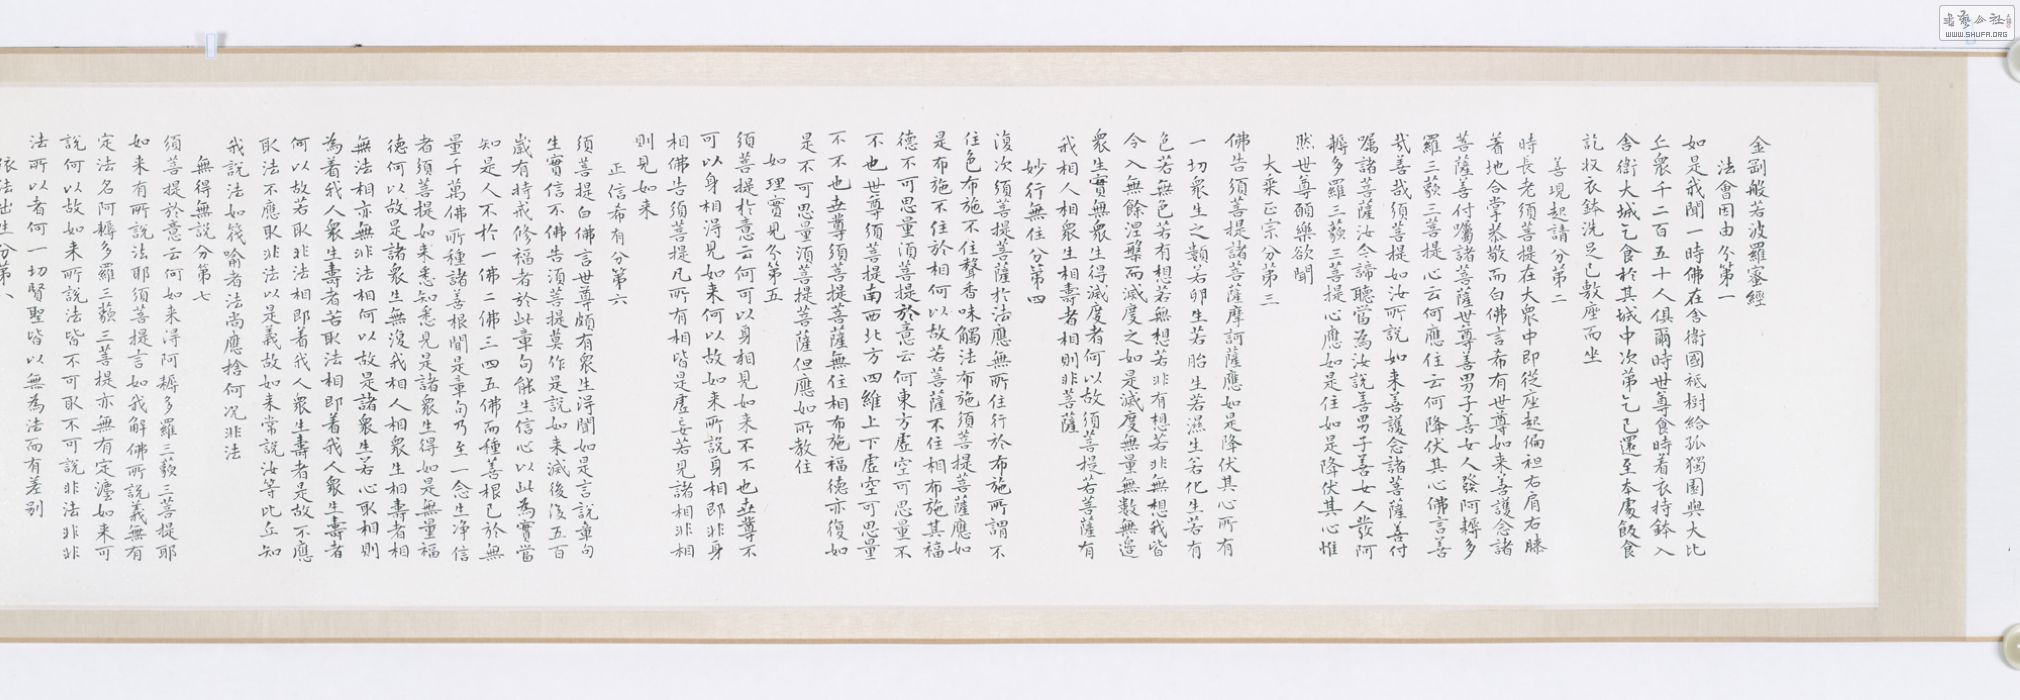 金剛般若波羅蜜經
法會因由分第一
如是我聞一時佛在舍衛國祇樹給孤獨園與大比
丘衆千二百五十人俱爾時世尊食時着衣持鉢入
舍衛大城乞食於其城中次第乞已還至本處飯食
訖收衣鉢洗足已敷座而坐
善現起請分第二
時長老須菩提在大衆中即從座起偏袒右肩右膝
着地合掌恭敬而白佛言希有世尊如来善護念諸
菩薩善付囑諸菩薩世尊善男子善女人發阿耨多
羅三藐三菩提心云何應住云何降伏其心佛言善
哉善哉須菩提如汝所說如来善護念諸菩薩善付
囑諸菩薩汝今諦聽當為汝說善男子善女人發阿
耨多羅三藐三菩提心應如是住如是降伏其心惟
然世尊願樂欲聞
大乘正宗分第三
佛告須菩提諸菩薩摩訶薩應如是降伏其心所有
一切衆生之類若卵生若胎生若濕生若化生若有
色若無色若有想若無想若非有想若非無想我皆
今入無餘涅槃而滅度之如是滅度無量無數無邊
衆生實無衆生得滅度者何以故須菩提若菩薩有
我相人相衆生相壽者相則非菩薩
妙行無住分第四
復次須菩提菩薩於法應無所住行於布施所謂不
住色布施不住聲香味觸法布施須菩提菩薩應如
是布施不住於相何以故若菩薩不住相布施其福
德不可思量須菩提於意云何東方虛空可思量不
不也世尊須菩提南西北方四維上下虛空可思量
不不也世尊須菩提菩薩無住相布施福德亦復如
是不可思量須菩提菩薩但應如所教住
如理實見分第五
須菩提於意云何可以身相見如来不不也世尊不
可以身相得見如来何以故如来所說身相即非身
相佛告須菩提凡所有相皆是虛妄若見諸相非相
則見如来
正信希有分第六
須菩提白佛言世尊頗有衆生得聞如是言說章句
生實信不佛告須菩提莫作是說如来滅後後五百
歲有持戒修福者於此章句能生信心以此為實當
知是人不於一佛二佛三四五佛而種善根已於無
量千萬佛所種諸善根聞是章句乃至一念生淨信
者須菩提如来悉知悉見是諸衆生得如是無量福
德何以故是諸衆生無復我相人相衆生相壽者相
無法相亦無非法相何以故是諸衆生若心取相則
為着我人衆生壽者若取法相即着我人衆生壽者
何以故若取非法相即着我人衆生壽者是故不應
取法不應取非法以是義故如来常說汝等比丘知
我說法如筏喻者法尚應捨何况非法
無得無說分第七
須菩提於意云何如来得阿耨多羅三藐三菩提耶
如来有所說法耶須菩提言如我解佛所說義無有
定法名阿耨多羅三藐三菩提亦無有定灋如来可
說何以故如来所說法皆不可取不可說非法非非
法所以者何一切賢聖皆以無為法而有差别
依法出生分第八
書藝公社
WWW.SHUFA.ORG